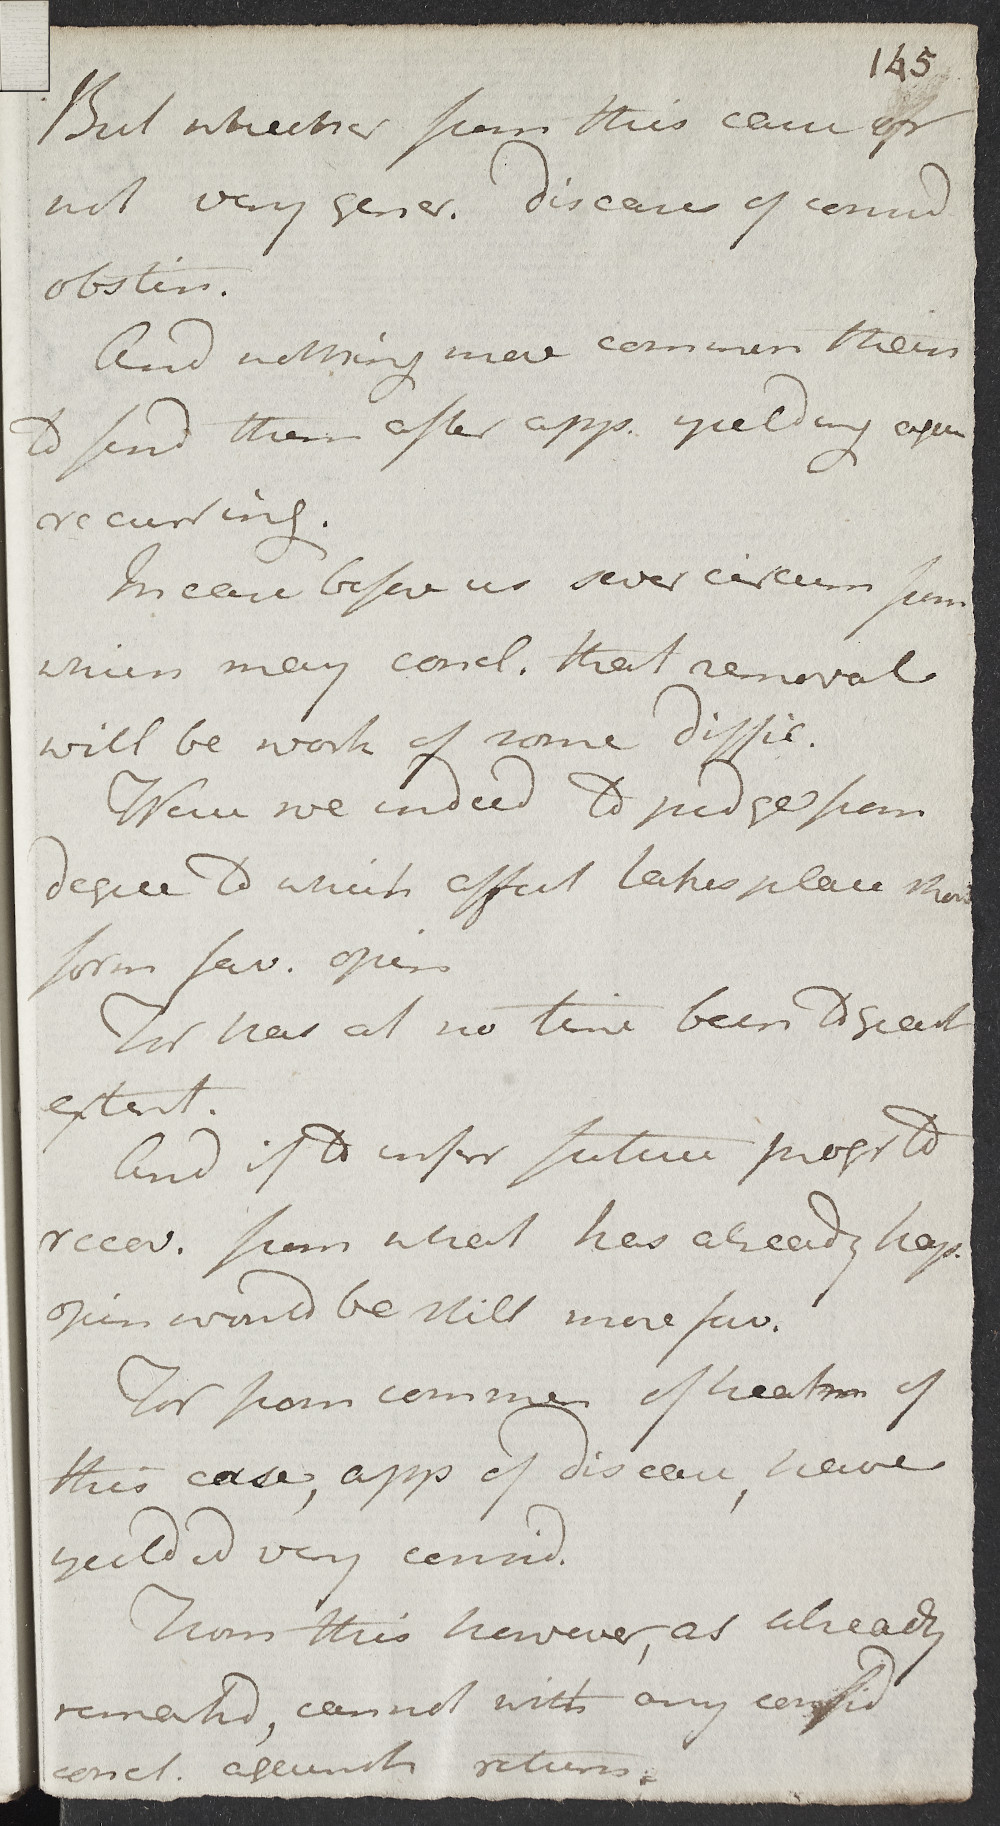 145
But whether from this cause or
not very gener. diseases of consid
obstin.
And nothing more common than
to find them after app. yielding again
recurring.
In case before us sever circum from
which may concl. that removal
will be work of some diffic.
Were we indeed to judge from
degree to which affect takes place shod
form fav. opin
For has at no time been to great
extent.
And if to infer future progr to
recov. from what has already hap.
opin would be still more fav.
For from commen of treatm of
this case, app of disease, have
yeilded very consid.
From this however, as already
remarkd, cannot with any confid
concl. against return.